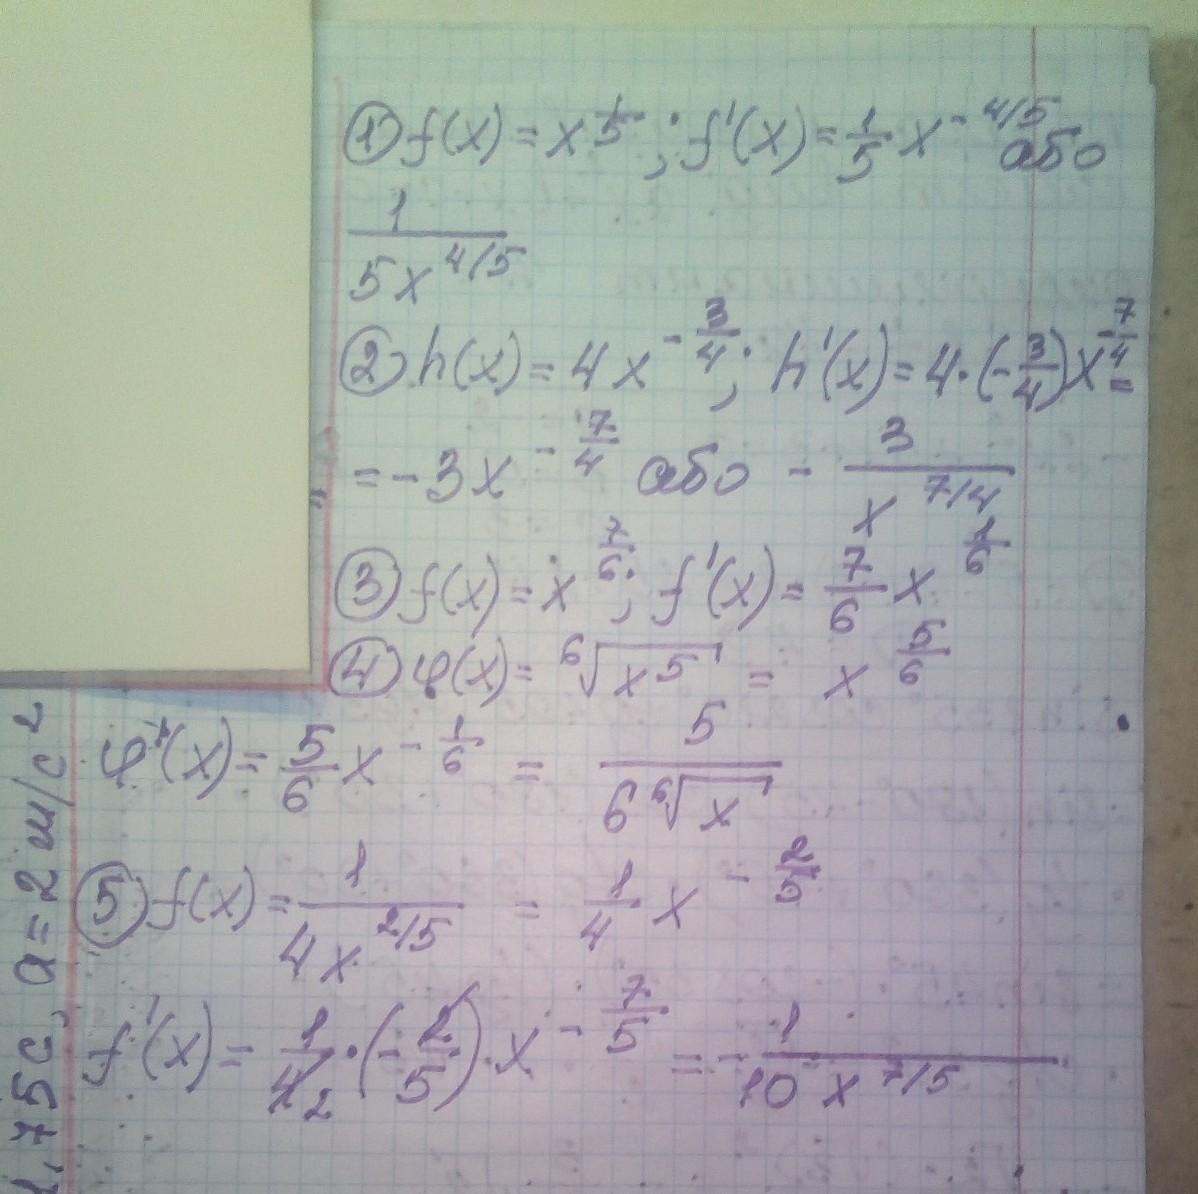 ① f(x) = x^(1/5); f'(x) = 1/5 x^(-4/5) або
1/(5x^(4/5))
② h(x) = 4x^(-3/4); h'(x) = 4·(-3/4)x^(-7/4) =
= -3x^(-7/4) або - 3/(x^(7/4))
③ f(x) = x^(7/6); f'(x) = 7/6 x^(1/6)
④ φ(x) = ⁶√(x⁵) = x^(5/6)
φ'(x) = 5/6 x^(-1/6) = 5/(6 ⁶√x)
⑤ f(x) = 1/(4x^(2/5)) = 1/4 x^(-2/5)
f'(x) = 1/4₂ · (-2/5) · x^(-7/5) = - 1/(10 x^(7/5))
1,75с, a = 2 м/с²